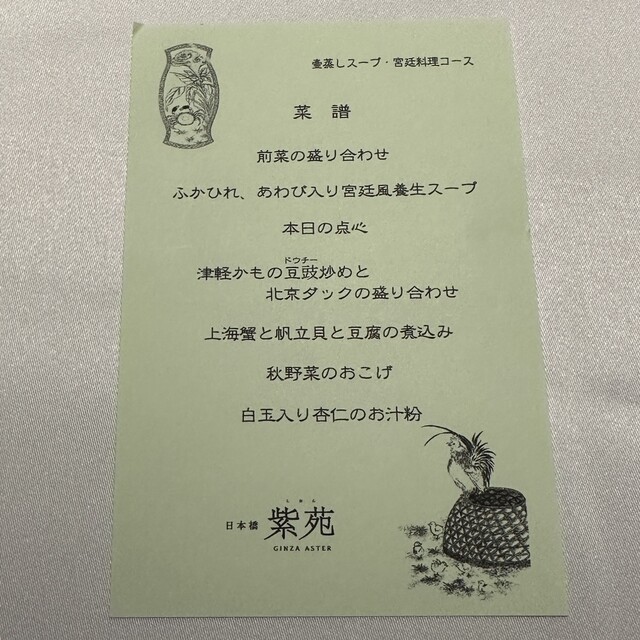 壷蒸しスープ・宮廷料理コース
菜 譜
前菜の盛り合わせ
ふかひれ、あわび入り宮廷風養生スープ
本日の点心
ドウチー
津軽かもの豆豉炒めと
北京ダックの盛り合わせ
上海蟹と帆立貝と豆腐の煮込み
秋野菜のおこげ
白玉入り杏仁のお汁粉
しおん
日本橋 紫苑
GINZA ASTER